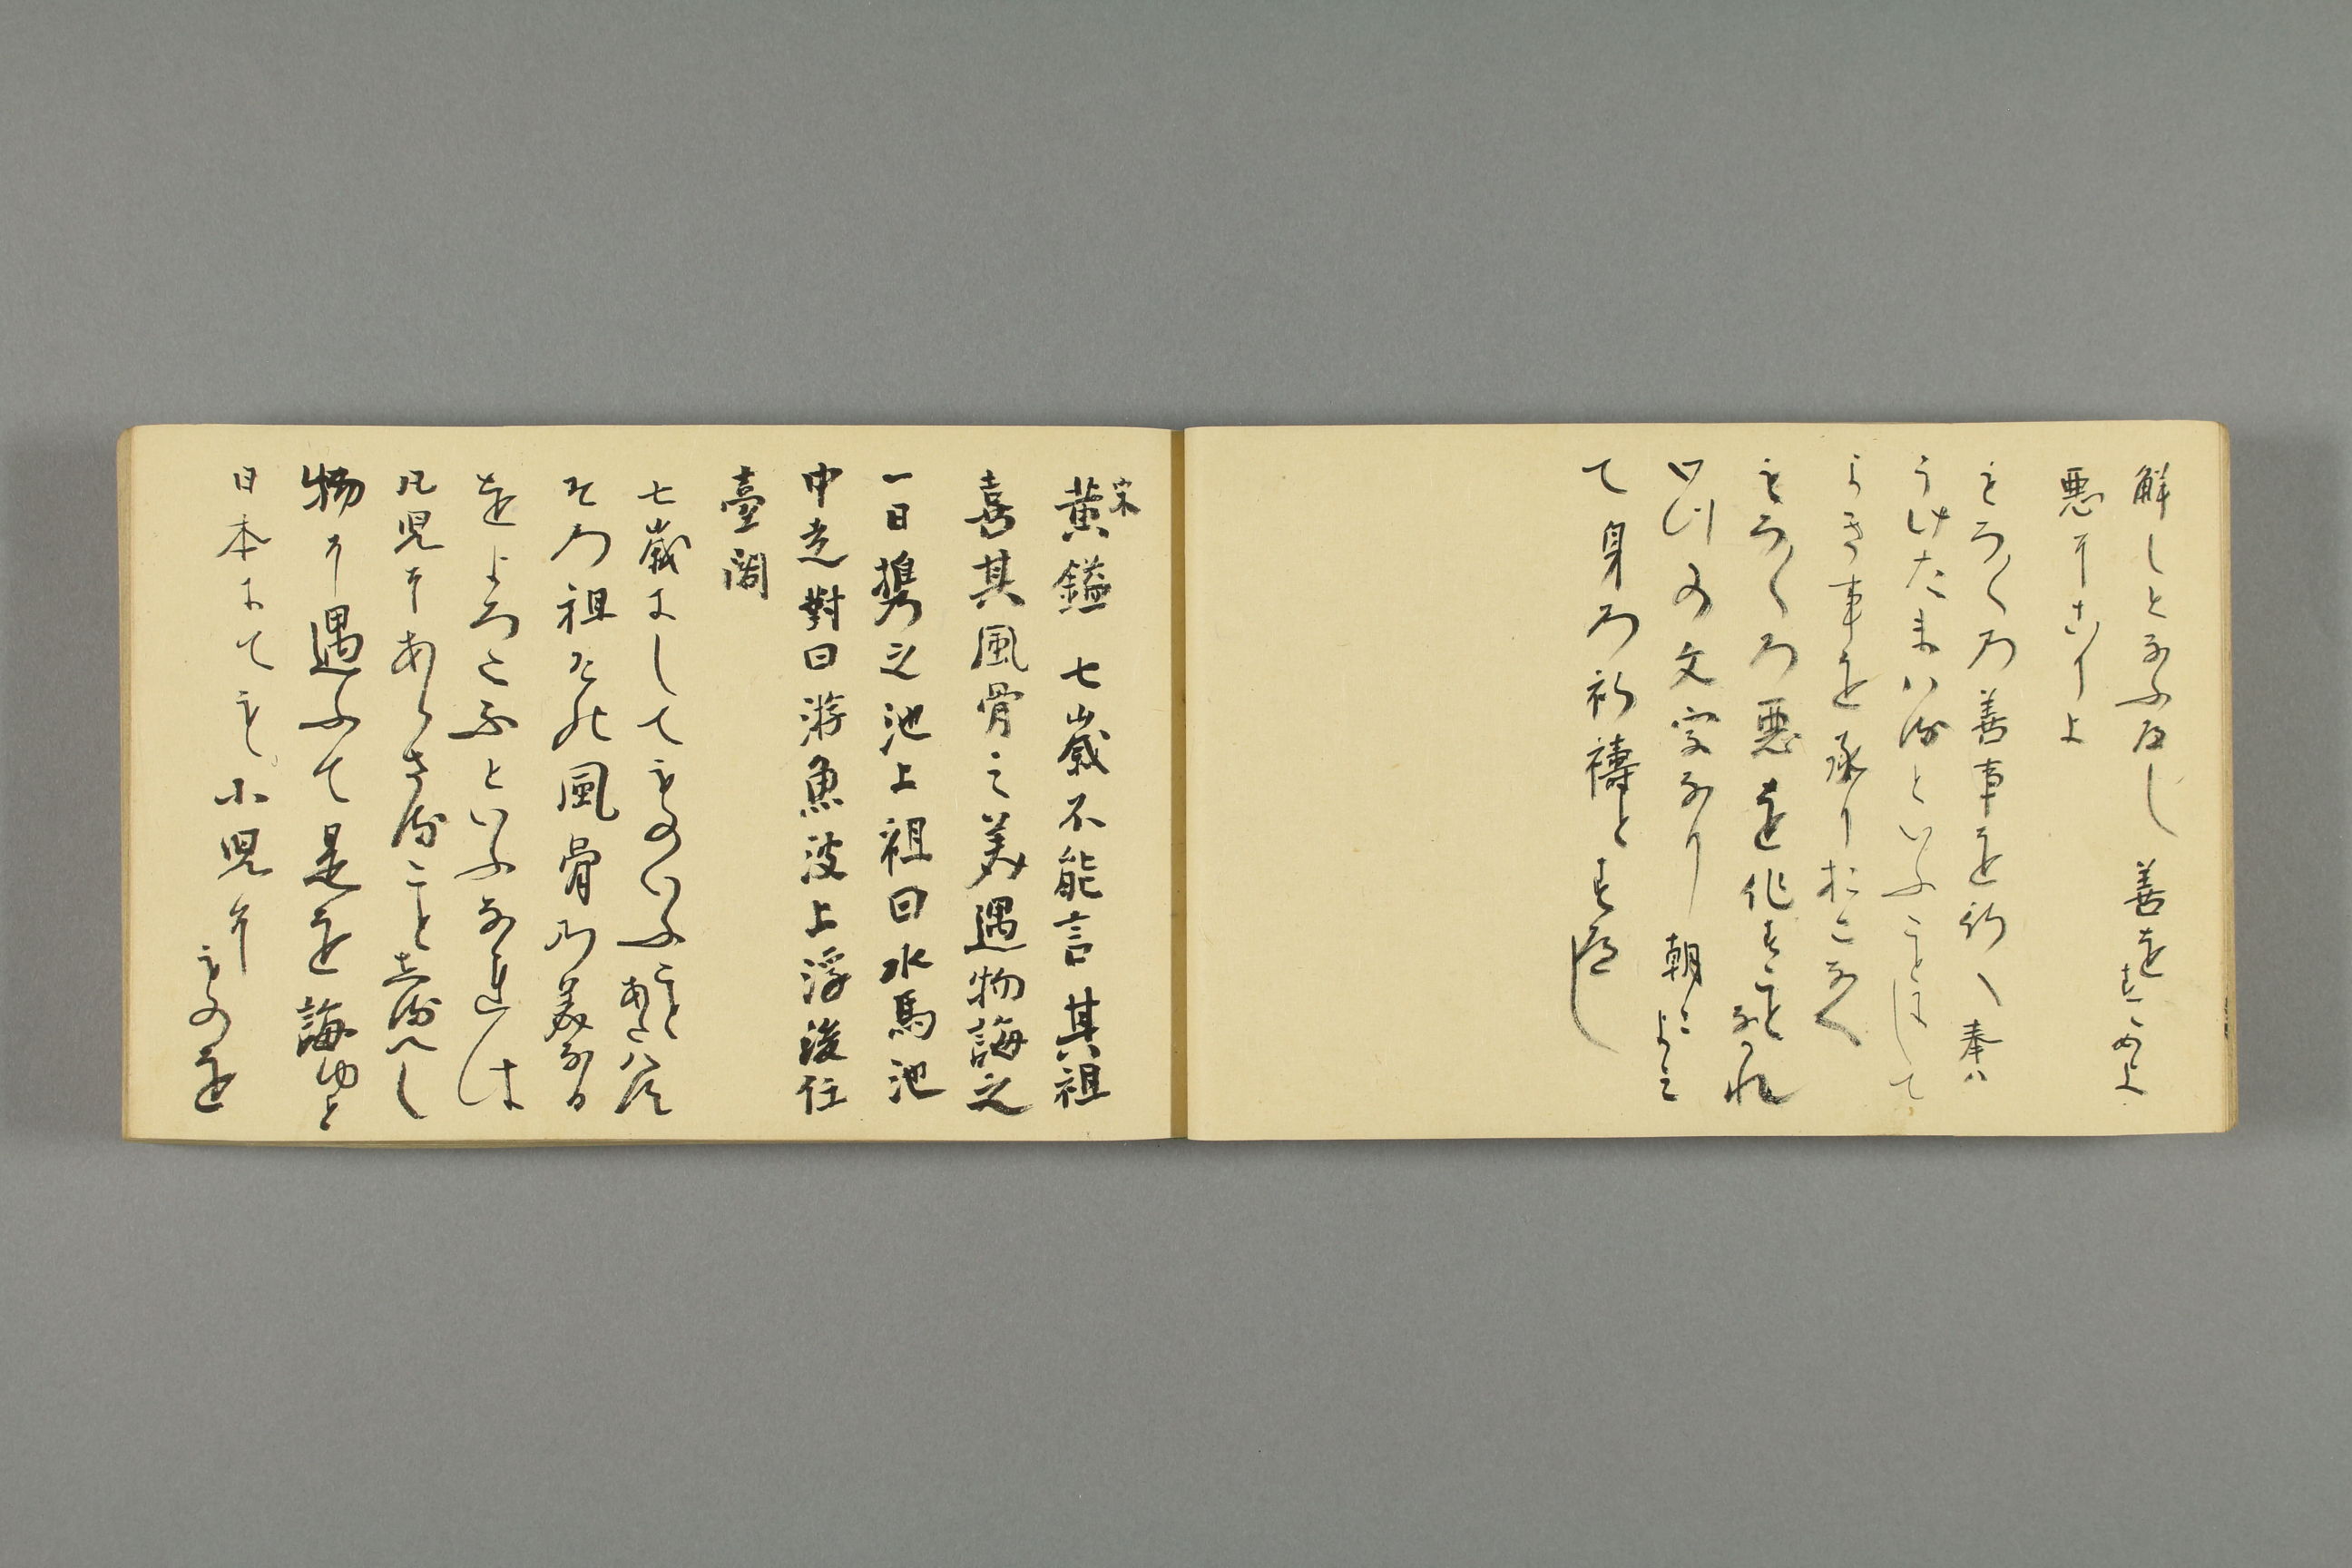 解しとなふべし　善をすゝめよ
悪にこりよ
もろ〳〵乃善事を行へ奉は
うけたまハるといふことにして
よき事を承りおこなへ
もろ〳〵乃悪を作すことなかれ
此の文字なり　朝によみ
て身乃祈禱とすべし
宋
黄鎰　七歳不能言其祖
喜其風骨之美遇物誨之
一日携之池上祖曰水馬池
中走對曰游魚波上浮後任
臺閣
七歳にしてものいふことあたハず
その祖その風骨の美なる
をよろこぶといふなれは
凡児にあらさること志るへし
物に遇ふて是を誨ゆと
日本にても小児にものを